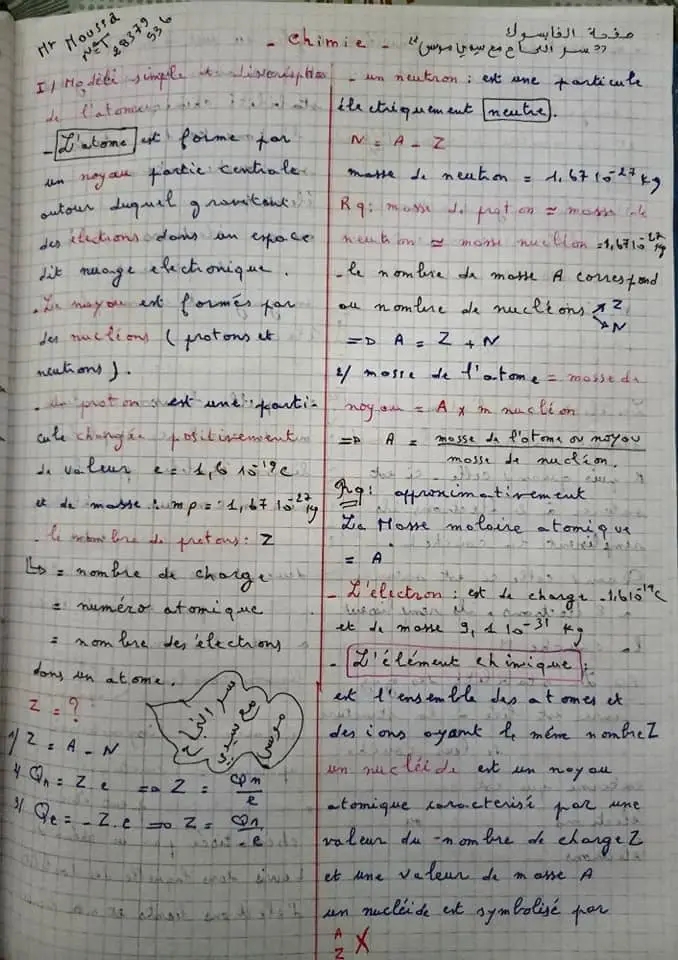 Mr Moussa
28379
536
- Chimie -
صفحة الفايسبوك
"سر النجاح مع سيدي موسى"
I/ Modèle simple et description
de l'atome
- L'atome est formé par
un noyau partie centrale
autour duquel gravitent
des électrons dans un espace
dit nuage electronique.
. Le noyau est formés par
des nucléons (protons et
neutrons).
. un proton : est une parti-
cule chargée positivement
de valeur e = 1,6 10⁻¹⁹ C
et de masse : mp = 1,67 10⁻²⁷ kg
. le nombre de protons : Z
↳ = nombre de charge
= numéro atomique
= nombre des électrons
dans un atome.
Z = ?
1/ Z = A - N
2/ Qn = Z.e => Z = Qn/e
3/ Qe = -Z.e => Z = Qn/-e
سر النجاح
مع سيدي
موسى
- un neutron : est une particule
électriquement neutre.
N = A - Z
masse de neutron = 1,67 10⁻²⁷ kg
Rq : masse de proton ≃ masse de
neutron ≃ masse nucléon = 1,67 10⁻²⁷ kg
- le nombre de masse A correspond
au nombre de nucléons ↗ Z
↘ N
=> A = Z + N
2/ masse de l'atome = masse de
noyau = A x m nucléon
=> A = masse de l'atome ou noyau
masse de nucléon.
Rq : approximativement
La Masse molaire atomique
= A
- L'électron : est de charge -1,6 10⁻¹⁹ C
et de masse 9,1 10⁻³¹ kg
- L'élément chimique :
est l'ensemble des atomes et
des ions ayant le même nombre Z
un nucléide est un noyau
atomique caracterisé par une
valeur du nombre de charge Z
et une valeur de masse A
un nucléide est symbolisé par
A
Z X